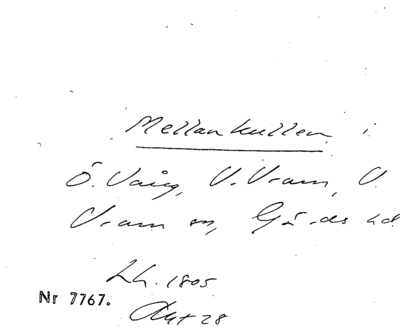 Mellankullen i
Ö. Vång, V. Vram, V.
Vram sn, Gärds hd
Lh. 1805
Nr 7767.
Akt 28